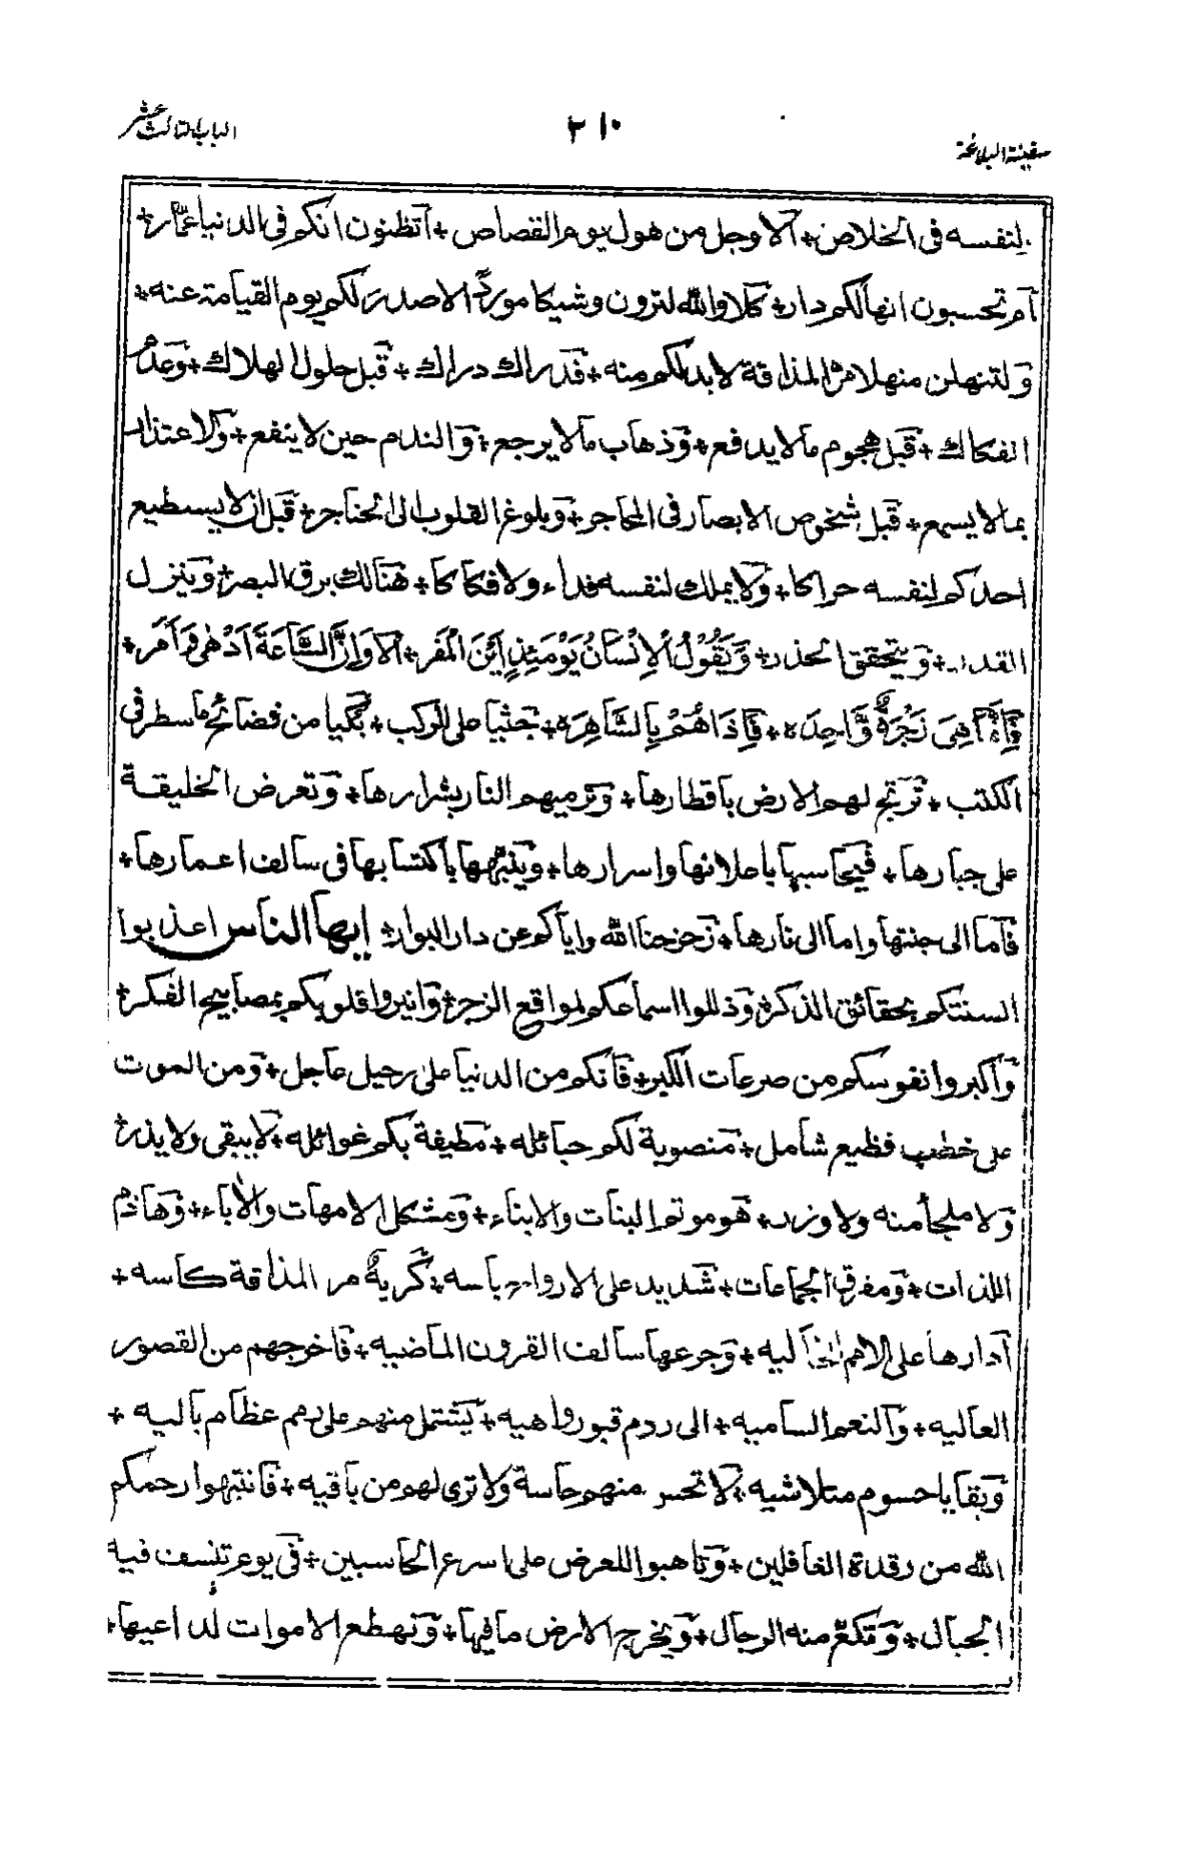 سفينة البلاغة
٢١٠
الباب الثالث عشر
لنفسه فى الخلاص+ آلا وجل من هول يوم القصاص+ أتظنون انكم فى الدنيا عمّار+
آم تحسبون انها لكم دار+ كلا والله لترون وشيكا مورد الا صدر لكم يوم القيامة عنه+
ولتنهلن منهلا مرّ المذاقة لا بد لكم منه+ فدراك دراك+ قبل حلول الهلاك+ وعدم
الفكاك+ قبل هجوم ما لا يدفع+ وذهاب ما لا يرجع+ والندم حين لا ينفع+ ولاعتذار
بما لا يسمع+ قبل شخوص الابصار فى المحاجر+ وبلوغ القلوب الى الحناجر+ قبل ان لا يسطيع
احدكم لنفسه حراكا+ ولا يملك لنفسه فداء ولا فكاكا+ هنالك برق البصر+ وينزل
القدر+ ويتحقق الحذر+ وَيَقُوْلُ الْاِنْسَانُ يَوْمَئِذٍ اَيْنَ الْمَفَر+ آلا وَاِنَّ السَّاعَةَ اَدْهٰى وَاَمَر+
فَاِنَّمَا هِىَ زَجْرَةٌ وَّاحِدَه+ فَاِذَا هُمْ بِالسَّاهِرَه+ جثيا على الركب+ بكيا من فضائح ما سطر فى
الكتب+ ترتج لهم الارض باقطارها+ وترميهم النار بشرارها+ وتعرض الخليقة
على جبارها+ فيحاسبها باعلانها واسرارها+ وينبئها باكتسابها فى سالف اعمارها+
فاما الى جنتها واما الى نارها+ زحزحنا الله واياكم عن دار البوار+ ايها الناس اعذبوا
السنتكم بحقائق الذكر+ وذللوا اسماعكم لمواقع الزجر+ وانيروا قلوبكم بمصابيح الفكر+
واكبروا نفوسكم من صرعات الكبر+ فانكم من الدنيا على رحيل عاجل+ ومن الموت
على خطب فظيع شامل+ منصوبة لكم حبائله+ مطيفة بكم غوائله+ لا يبقى ولا يذر+
ولا ملجأ منه ولا وزر+ هو موتم البنات والابناء+ ومثكل الامهات والآباء+ وهاذم
اللذات+ ومفرق الجماعات+ شديد على الارواح باسه+ كريهٌ مر المذاقة كاسه+
آدارها على الامم الخاليه+ وجرعها سالف القرون الماضيه+ فاخرجهم من القصور
العاليه+ والنعم الساميه+ الى ردم قبور واهيه+ يشتمل منهم على رمم عظام باليه+
وبقايا جسوم متلاشيه+ لا تحس منهم حاسة ولا ترى لهم من باقيه+ فانتبهوا رحمكم
الله من رقدة الغافلين+ وتاهبوا للعرض على اسرع الحاسبين+ فى يوم تنسف فيه
الجبال+ وتكعّ منه الرجال+ ويخرج الارض ما فيها+ وتهطع الاموات لداعيها+